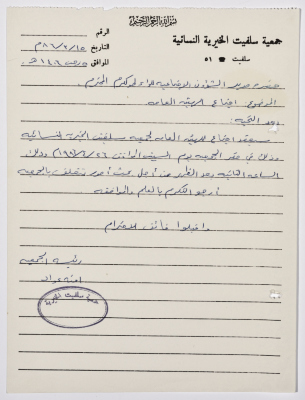 بسم الله الرحمن الرحيم
جمعية سلفيت الخيرية النسائية
سلفيت ☎ ٥١
الرقم
التاريخ ١٥ / ٢ / ٨٦م
الموافق
حضرة مدير الشؤون الاجتماعية لواء طولكرم المحترم
الموضوع: اجتماع الهيئة العامة
وبعد التحية:
سيعقد اجتماع للهيئة العامة لجمعية سلفيت الخيرية النسائية
وذلك في مقر الجمعية يوم السبت الموافق وذلك
الساعة الثانية بعد الظهر من أجل بحث أمور تتعلق بالجمعية
أرجو التكرم بالعلم والموافقة
واقبلوا فائق الاحترام
رئيسة الجمعية
جمعية سلفيت الخيرية